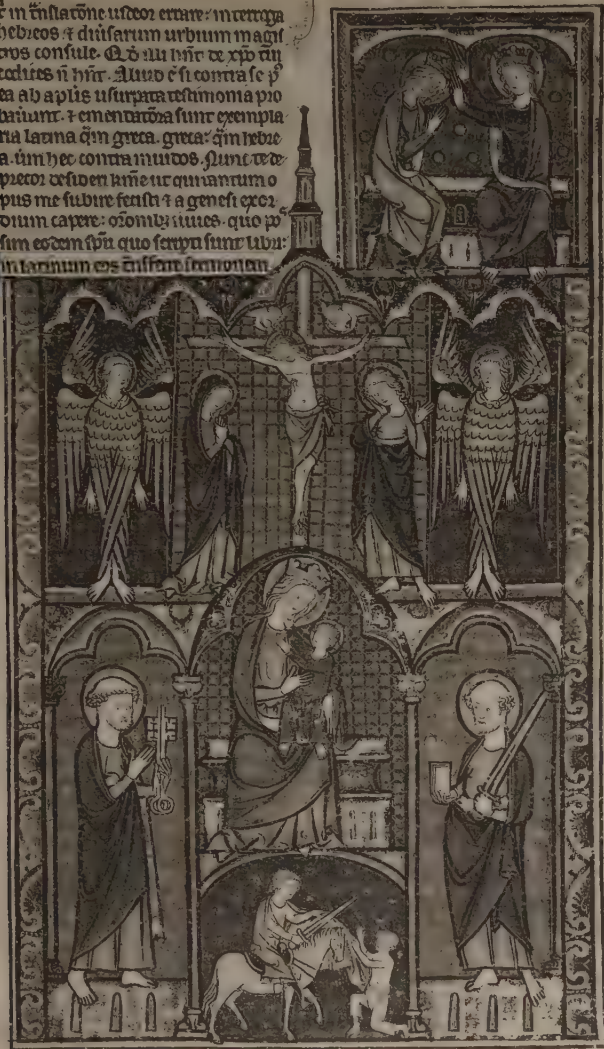 t in t̄nslatōne uideor errare: interroga
hebreos ⁊ diu̾sarum urbium magis
tros consule. Qđ illi hn̄t de xp̄o tui
codices n̄ hn̄t. Aliud ē si contra se p⁹
ea ab aplīs usurpata testimonia pro
bauunt. ⁊ emendatiōra sunt exempla
ria latina q̄m greca. greca: q̄m hebre
a. Uīm hec contra inuidos. Nunc te de
precor desideri kīme ut qui tantum o
pus me subire fecisti ⁊ a genesi exor
dium capere: orōnibꝫ iuues. quo pos
sim eodem sp̄u quo scripti sunt libri:
in latinum eos t̄nsferre sermonem